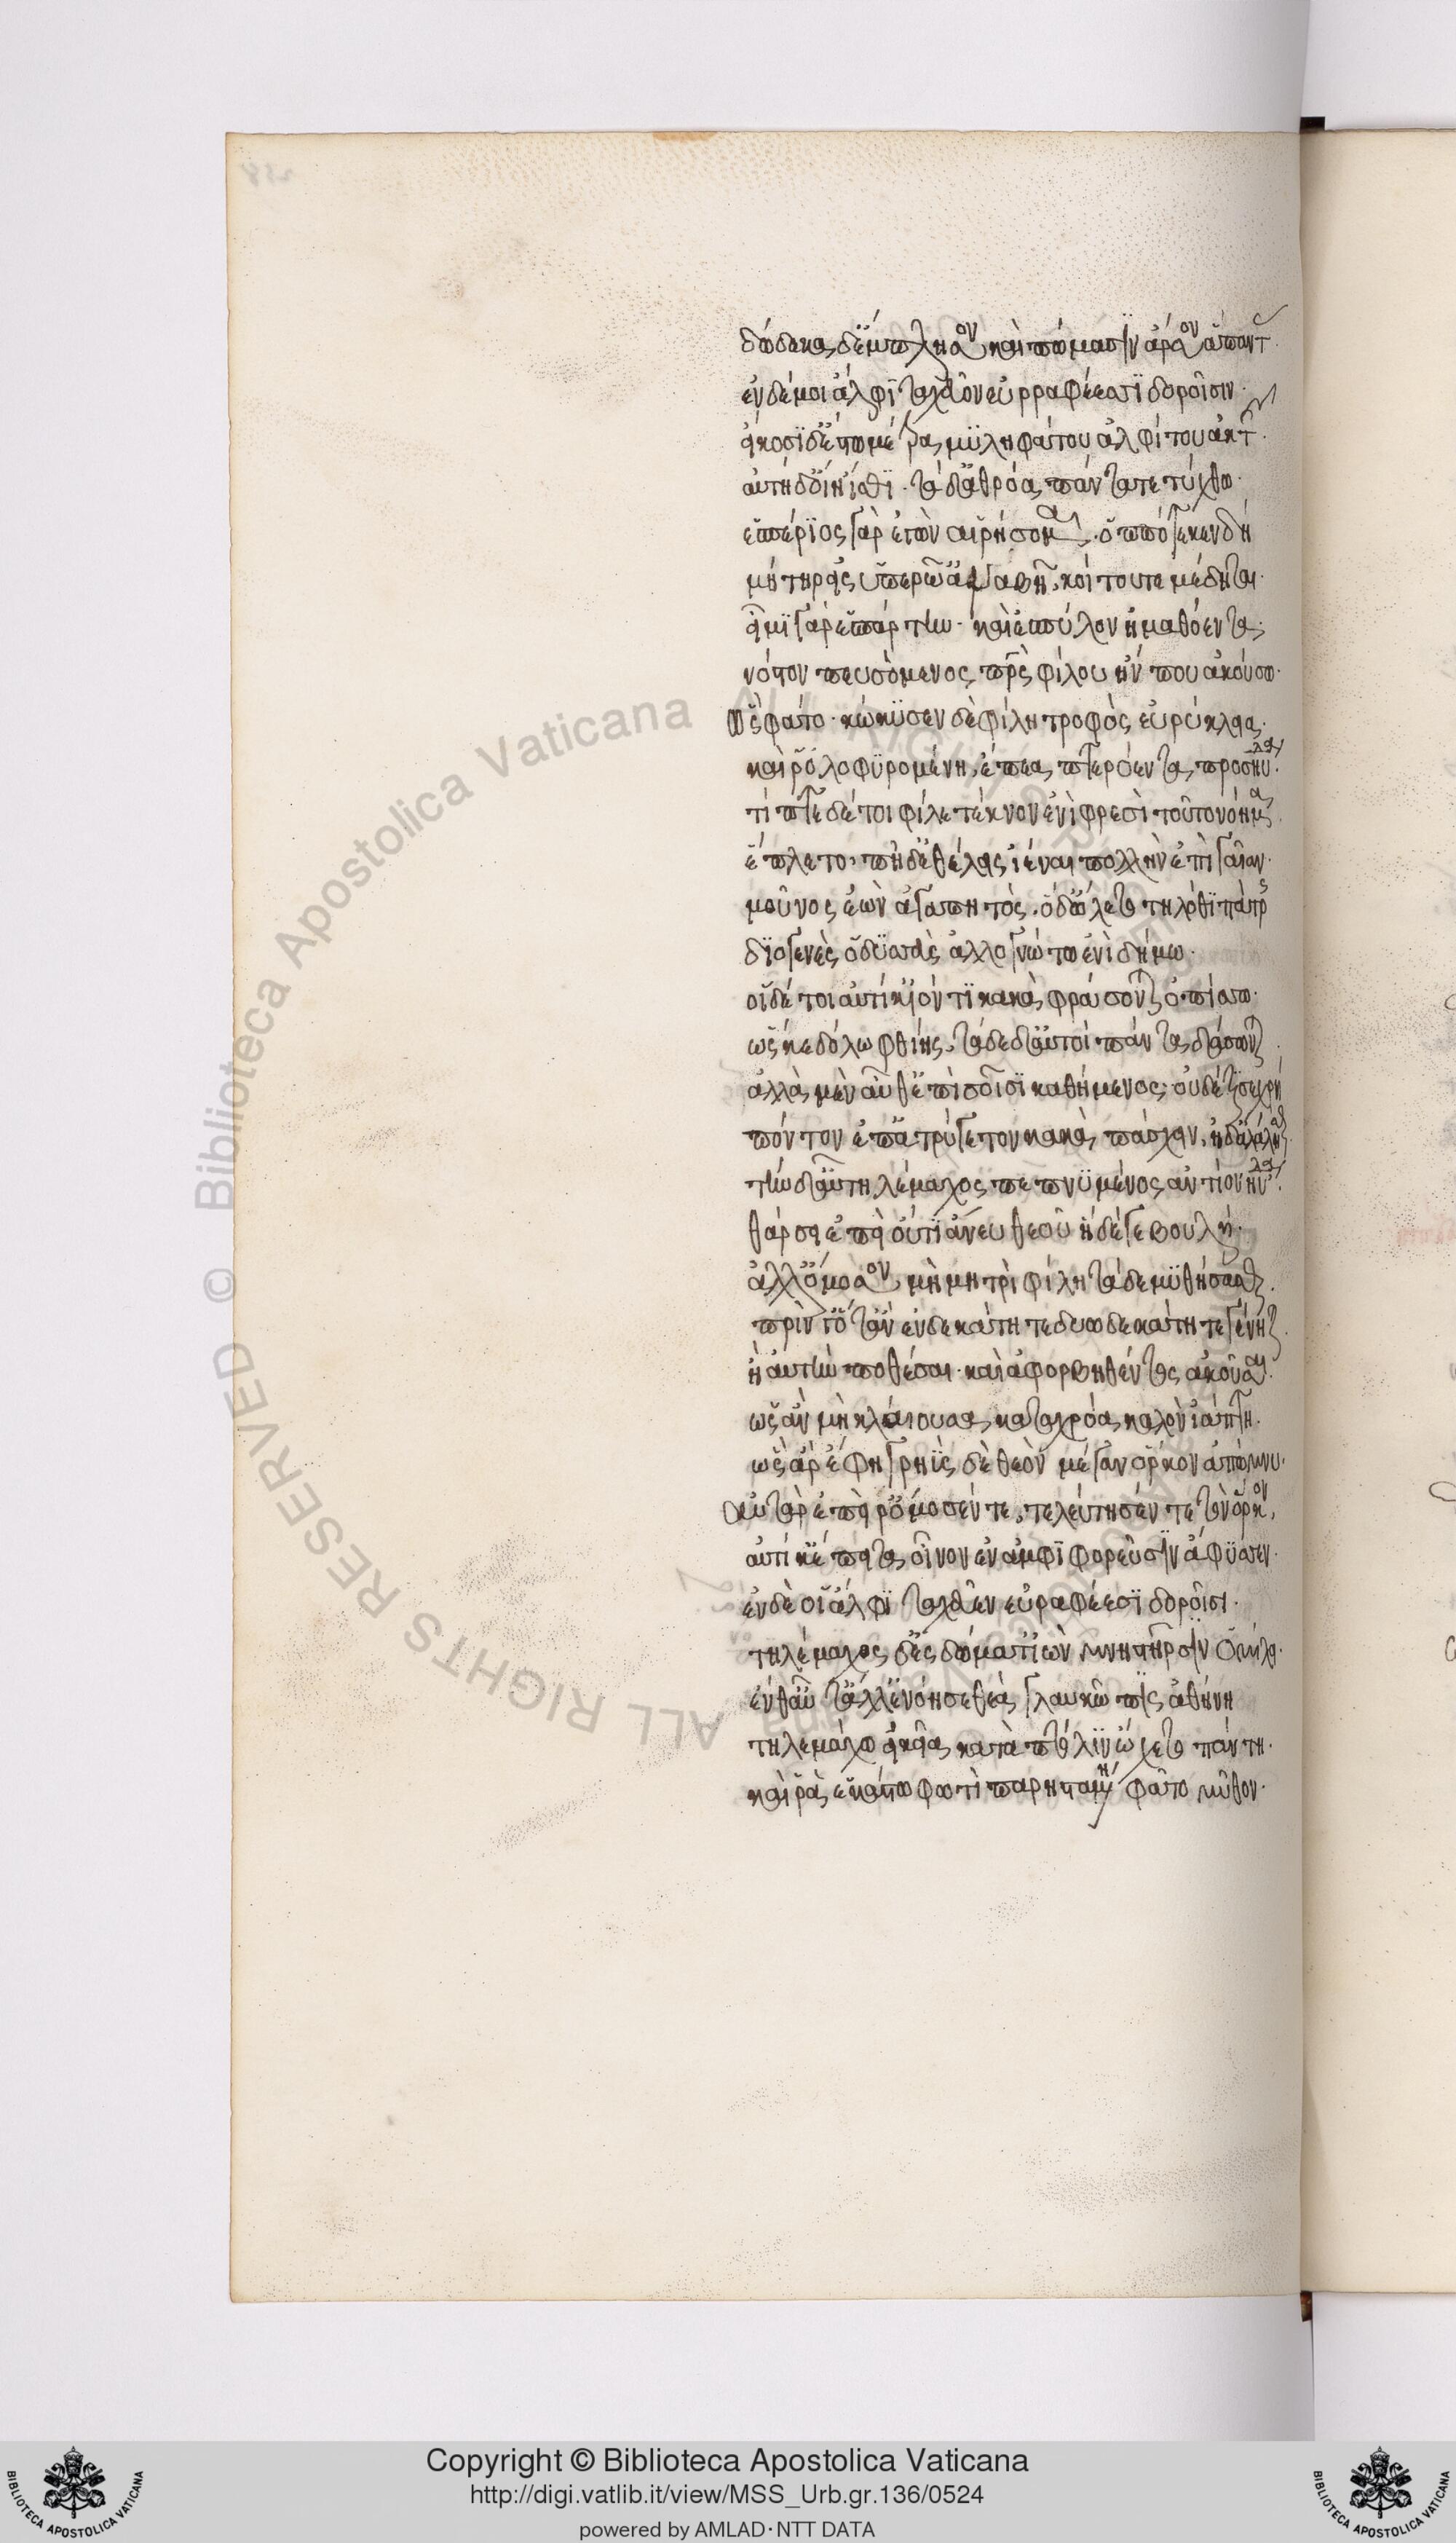 δώδεκα δ' ἔμπλησον καὶ πώμασιν ἄρσον ἅπαντ
ἐν δέ μοι ἄλφιτα χεῦον εὐρραφέεσσι δοροῖσιν.
εἴκοσι δ' ἔστω μέτρα μυληφάτου ἀλφίτου ἀκτ.
αὐτὴ δ' οἴη ἴσθι. τὰ δ' ἀθρόα πάντα τετύχθω.
ἑσπέριος γὰρ ἐγὼν αἱρήσομαι. ὁππότε κεν δὴ
μήτηρ εἰς ὑπερῷ' ἀναβῇ, κοίτου τε μέδηται.
εἶμι γὰρ ἐς σπάρτην. καὶ ἐς πύλον ἠμαθόεντα.
νόστον πευσόμενος πρς φίλου ἤν που ἀκούσω.
ὣς φάτο. κώκυσεν δὲ φίλη τροφὸς εὐρύκλεια.
καί ῥ' ὀλοφυρομένη, ἔπεα πτερόεντα προσηύδα.
τί πτε δέ τοι φίλε τέκνον ἐνὶ φρεσὶ τοῦτο νόημα
ἔπλετο, πῇ δ' ἐθέλεις ἰέναι πολλὴν ἐπὶ γαῖαν.
μοῦνος ἐὼν ἀγαπητός. ὁ δ' ὤλετο τηλόθι πάτρς
διογενὲς ὀδυσσεὺς ἀλλογνώτω ἐνὶ δήμω.
οἱ δέ τοι αὐτίκ' ἰόντι κακὰ φράσονται ὀπίσσω.
ὥς κε δόλω φθίης, τάδε δ' αὐτοὶ πάντα δάσονται.
ἀλλὰ μὲν αὖθ' ἐπὶ σοῖσι καθήμενος. οὐδέ τί σε χρὴ
πόντον ἐπ' ἀτρύγετον κακὰ πάσχειν, ἠδ' ἀλάλησθαι.
τὴν δ' αὖ τηλέμαχος πεπνυμένος ἀντίον ηὔδα.
θάρσει ἐπεὶ οὔτι ἄνευ θεοῦ ἥδέ γε βουλή.
ἀλλ' ὄμοσον, μὴ μητρὶ φίλη τάδε μυθήσασθαι.
πρίν γ' ὅτ' ἂν ἑνδεκάτη τε δυωδεκάτη τε γένηται.
ἢ αὐτὴν ποθέσαι. καὶ ἀφορμηθέντος ἀκοῦσαι.
ὡς ἂν μὴ κλαίουσα κατα χρόα καλὸν ἰάπτη.
ὣς ἄρ' ἔφη γρηῢς δὲ θεῶν μέγαν ὅρκον ἀπώμνυ.
αὐτὰρ ἐπεί ῥ' ὄμοσέν τε, τελεύτησέν τε τὸν ὅρκον,
αὐτίκ' ἔπειτα οἶνον ἐν ἀμφιφορεῦσιν ἄφυσσεν.
ἐν δὲ οἱ ἄλφιτα χεῦεν εὐραφέεσι δοροῖσι.
τηλέμαχος δ' ἐς δώματ' ἰὼν μνηστῆρσιν ὁμίλει.
ἔνθ' αὖτ' ἄλλ' ἐνόησε θεὰ γλαυκῶπις ἀθήνη
τηλεμάχω εἰκυῖα κατὰ πτόλιν ᾤχετο πάντη.
καί ῥα ἑκάστω φωτὶ παρισταμένη φάτο μῦθον.
Copyright © Biblioteca Apostolica Vaticana
http://digi.vatlib.it/view/MSS_Urb.gr.136/0524
powered by AMLAD·NTT DATA